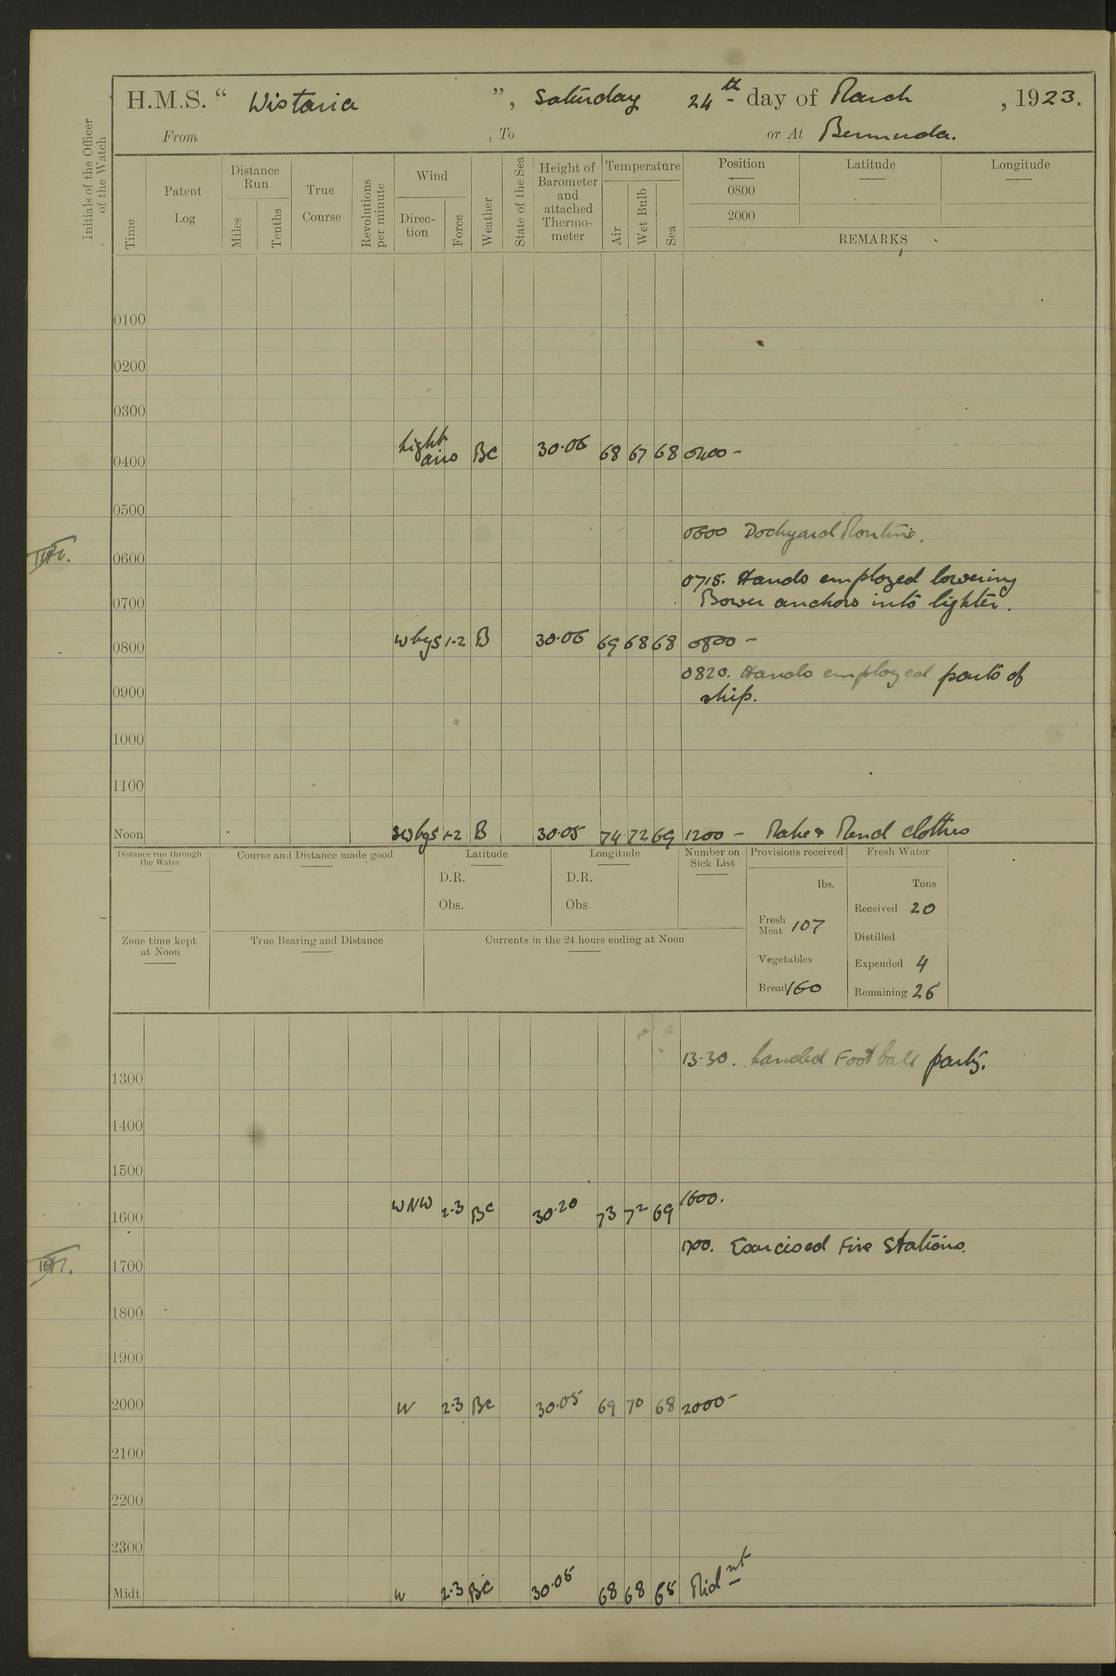 H.M.S. “ Wistaria ”, Saturday 24th day of March , 1923.
From , To or At Bermuda.
Initials of the Officer of the Watch
Time
Patent Log
Distance Run
Miles
Tenths
True Course
Revolutions per minute
Wind
Direc-tion
Force
Weather
State of the Sea
Height of Barometer and attached Thermo-meter
Temperature
Air
Wet Bulb
Sea
Position Latitude Longitude
0800
2000
REMARKS
0100
0200
0300
0400 Light airs BC 30.06 68 67 68 0400 -
0500
0600 Dockyard Routine.
0600
0715. Hands employed lowering
0700 Bower anchors into lighter.
0800 W by S 1-2 B 30.06 69 68 68 0800 -
0820. Hands employed parts of
0900 ship.
1000
1100
Noon SW by S 1-2 B 30.05 74 72 69 1200 - Make & Mend clothes
Distance run through the Water
Course and Distance made good
Latitude
D.R.
Obs.
Longitude
D.R.
Obs.
Number on Sick List
Provisions received
lbs.
Fresh Meat 107
Vegetables
Bread 160
Fresh Water
Tons
Received 20
Distilled
Expended 4
Remaining 26
Zone time kept at Noon
True Bearing and Distance
Currents in the 24 hours ending at Noon
13.30. Landed Football party.
1300
1400
1500
1600 WNW 2.3 BC 30.20 73 72 69 1600.
1700. Exercised Fire Stations.
1700
1800
1900
2000 W 2.3 BC 30.05 69 70 68 2000 -
2100
2200
2300
Midt W 2.3 BC 30.05 68 68 68 Midnt